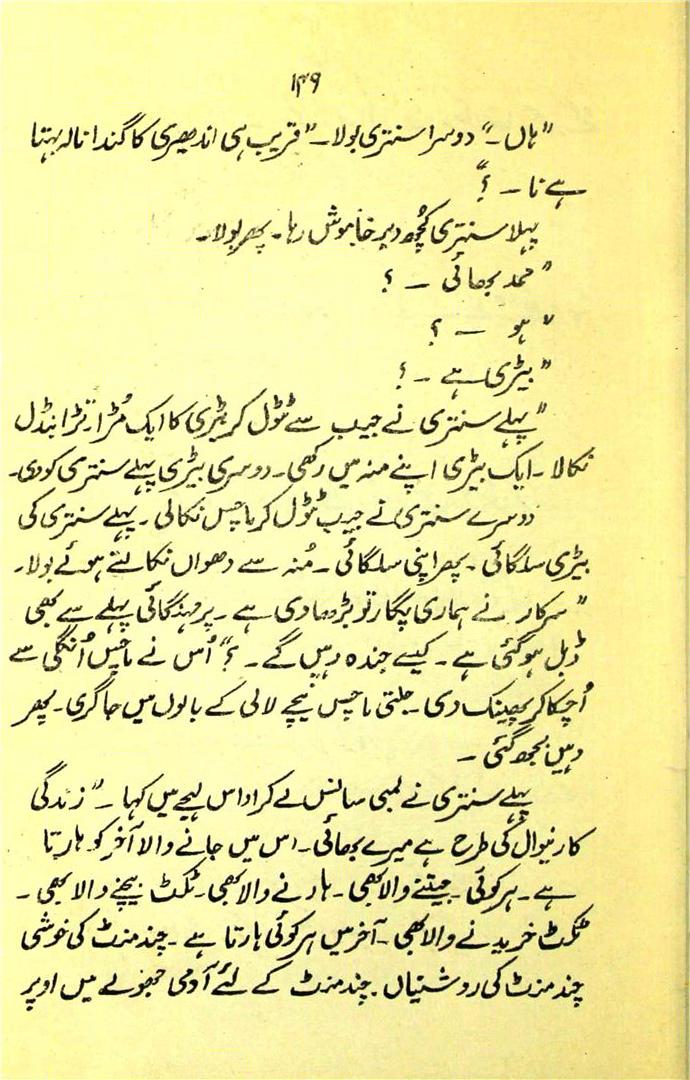 ۱۴۹
"ہاں۔" دوسرا سنتری بولا۔ "قریب ہی اندھیری کا گندا نالہ بہتا
ہے نا ۔ ؟"
پہلا سنتری کُچھ دیر خاموش رہا۔ پھر بولا۔
"محمد بھائی ۔ ؟
"ہو ۔ ؟
"بیڑی ہے ۔ ؟
"پہلے سنتری نے جیب سے ٹٹول کر بیڑی کا ایک مُڑا تڑا بنڈل
نکالا ۔ ایک بیڑی اپنے منہ میں رکھی۔ دوسری بیڑی پہلے سنتری کو دی۔
دوسرے سنتری نے جیب ٹٹول کر ماچس نکالی ۔ پہلے سنتری کی
بیڑی سلگائی ۔ پھر اپنی سلگائی ۔ مُنہ سے دھواں نکالتے ہوئے بولا۔
"سرکار نے ہماری پگار تو بڑھا دی ہے ۔ پر مہنگائی پہلے سے بھی
ڈبل ہو گئی ہے ۔ کیسے جندہ رہیں گے ۔ ؟" اُس نے ماچس اُنگلی سے
اُچکا کر پھینک دی ۔ جلتی ماچس نیچے لالی کے بالوں میں جا گری۔ پھر
وہیں بجھ گئی ۔
پہلے سنتری نے لمبی سانس لے کر اداس لہجے میں کہا ۔ "زندگی
کارنیوال کی طرح ہے میرے بھائی ۔ اس میں جانے والا آخر کو ہارتا
ہے ۔ ہر کوئی ۔ جیتنے والا بھی ۔ ہارنے والا بھی ۔ ٹکٹ بیچنے والا بھی ۔
ٹکٹ خریدنے والا بھی ۔ آخر میں ہر کوئی ہارتا ہے ۔ چند منٹ کی خوشی
چند منٹ کی روشنیاں ۔ چند منٹ کے لئے آدمی جھولے میں اوپر